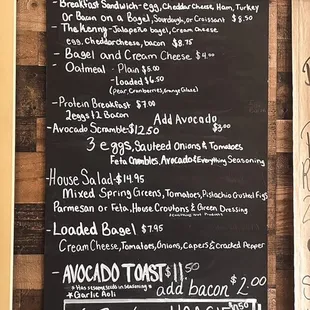 - Breakfast Sandwich - egg, Cheddar Cheese, Ham, Turkey
Or Bacon on a Bagel, Sourdough, or Croissant $8.50
- The Kenny - Jalapeño bagel, Cream cheese
egg, Cheddar cheese, bacon $8.75
- Bagel and Cream Cheese $4.00
- Oatmeal - Plain $5.00
- Loaded $6.50
(Pear, Cranberries,
- Protein Breakfast $7.00
2 eggs + 2 Bacon
Add Avocado
$3.00
- Avocado Scramble - $12.50
3 eggs, Sauteed Onions & Tomatoes
Feta Crumbles, Avocado & Everything Seasoning
- House Salad - $14.95
Mixed Spring Greens, Tomatoes, Pistachio Crusted Figs
Parmesan or Feta, House Croutons & Green Dressing
- Loaded Bagel $7.95
Cream Cheese, Tomatoes, Onions, Capers & Cracked Pepper
- AVOCADO TOAST $11.50
* Has sesame seeds in seasoning *
* Garlic Aoli
add bacon $2.00